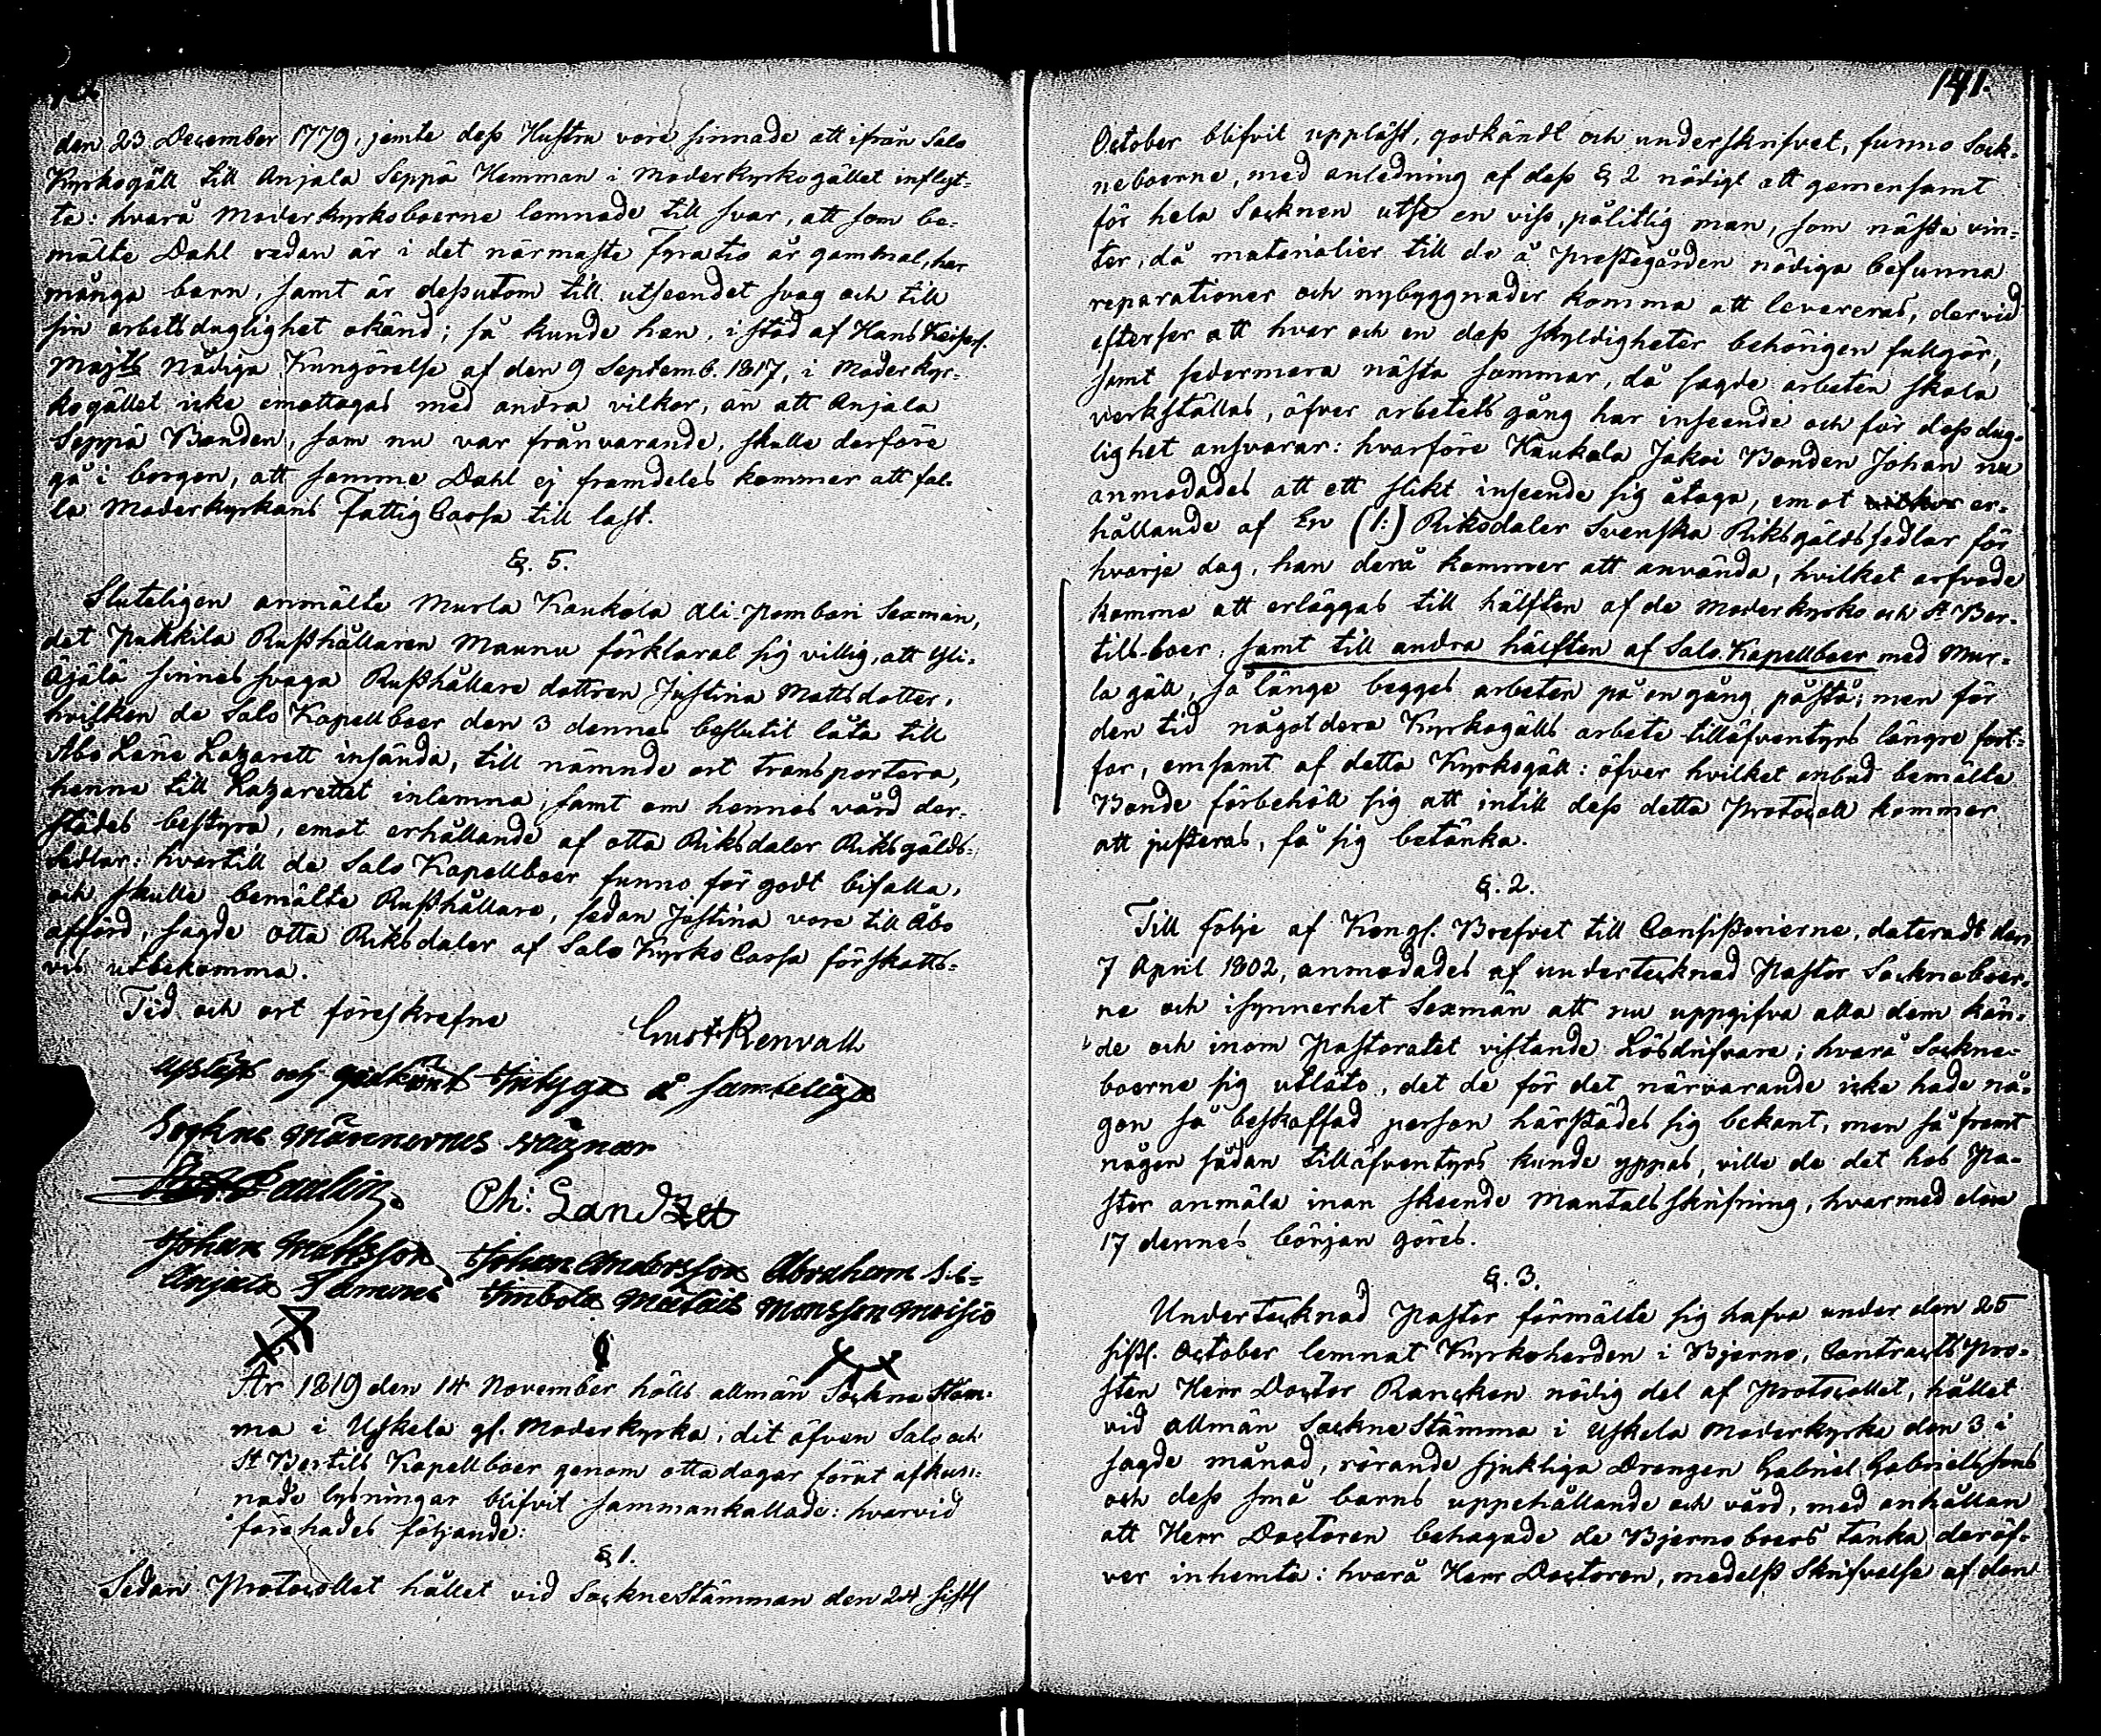 den 23 December 1779, jemte dess Hustru vore sinnade att ifrån Salo
Kyrkogäll till Anjala Seppä Hemman i Moderkyrkogället inflyt-
ta: hvarå Moderkyrkoboerne lemnade till svar, att som be-
mälte Dahl redan är i det närmaste Fyratio år gammal, har
många barn, samt är dessutom till utseendet svag och till
sin arbetsduglighet okänd; så kunde han, i stöd af Hans Keiserl.
Majts Nådiga Kungörelse af den 9 Septemb. 1817, i Moderkyr-
kogället icke emottagas med andra vilkor, än att Anjala
Seppä Bonden, som nu var frånvarande, skulle derföre
gå i borgen, att samme Dahl ej framdeles kommer att fal-
la Moderkyrkans Fattig Cassa till last.
§. 5.
Sluteligen anmälte Murla Kaukola Ali-Pombari Sexman,
det Pukkila Rusthållaren Maunu förklarat sig villig, att Yli-
Äjälä sinnes svaga Rusthållare dottren Justina Mattsdotter,
hvilken de Salo Kapellboer den 3 dennes beslutit låta till
Åbo Läns Lazarett insända, till nämnde ort transportera,
henne till Lazarettet inlemna, samt om hennes vård der-
städes bestyra, emot erhållande af otta Riksdaler Riksgälds-
sedlar: hvartill de Salo Kapellboer funno för godt bifalla,
och skulle bemälte Rusthållare, sedan Justina vore till Åbo
afförd, sagde otta Riksdaler af Salo Kyrko Cassa förskotts-
vis utbekomma.
Tid och ort föreskrefne
Gust. Renvall
Upläst och godkänt Intyga å samtelige
Sockne Männernes vägnar
Paulin.
Ch: Landzet
Johan Mattsson Johan Andersson Abraham Si-
Anjala Simbola Matais Monsson Moisio
År 1819 den 14 November hölls allmän Sockne Stäm-
ma i Uskela gl. Moderkyrka, dit äfven Salo och
St Bertils Kapellboer genom otta dagar förut afkun-
nade lysningar blifvit sammankallade: hvarvid
förehades följande:
§ 1.
Sedan Protocollet hållet vid SockneStämman den 24 sistl
141.
October blifvit uppläst, godkändt och underskrifvet, funno Sock-
neboerne, med anledning af dess § 2 nödigt att gemensamt
för hela Socknen utse en viss, pålitlig man, som nästa vin-
ter, då materialier till de å Prestegården nödiga befunna
reparationer och nybyggnader komma att levereras, dervid
efterser att hvar och en dess skyldigheter behörigen fullgör,
samt sedermera nästa sommar, då sagde arbeten skola
verkställas, öfver arbetets gång har inseende och för dess dug-
lighet ansvarar: hvarföre Kaukola Jakoi Bonden Johan nu
anmodades att ett slikt inseende sig åtaga, emot vilkor er-
hållande af En (1:) Riksdaler Svenska Riksgäldssedlar för
hvarje dag, han derå kommer att använda, hvilket arfvode
komma att erläggas till hälften af de Moderkyrko och St Ber-
tils-boer, samt till andra hälften af Salo Kapellboer med Mur-
la gäll, så länge begges arbeten på en gång påstå; men för
den tid någotdera Kyrkogälls arbete tilläfventyrs längre fort-
for, emsamt af detta Kyrkogäll: öfver hvilket anbud bemälte
Bonde förbehöll sig att intill dess detta Protocoll kommer
att justeras, få sig betänka.
§. 2.
Till följe af Kongl. Brefvet till Consistorierne, dateradt den
7 April 1802, anmodades af undertecknad Pastor Sockneboer-
ne och isynnerhet Sexmän att nu uppgifva alla dem kän-
de och inom Pastoratet vistande Lösdrifvare; hvarå Sockne-
boerne sig utläto, det de för det närvarande icke hade nå-
gon så beskaffad person härstädes sig bekant, men så framt
någon sådan tilläfventyrs kunde yppas, ville de det hos Pa-
stor anmäla inan skeende Mantalsskrifning, hvarmed den
17 dennes början göres.
§. 3.
Undertecknad Pastor förmälte sig hafva under den 25
sistl. October lemnat Kyrkoherden i Bjerno, Contracts Pro-
sten Herr Doctor Rancken nödig del af Protocollet, hållet
vid allmän SockneStämma i Uskela Moderkyrka den 3 i
sagde månad, rörande sjukliga Drengen Gabriel Gabrielssons
och dess små barns uppehållande och vård, med anhållan
att Herr Doctoren behagade de Bjerno boers tanka deröf-
ver inhemta: hvarå Herr Doctoren, medelst Skrifvelse af den